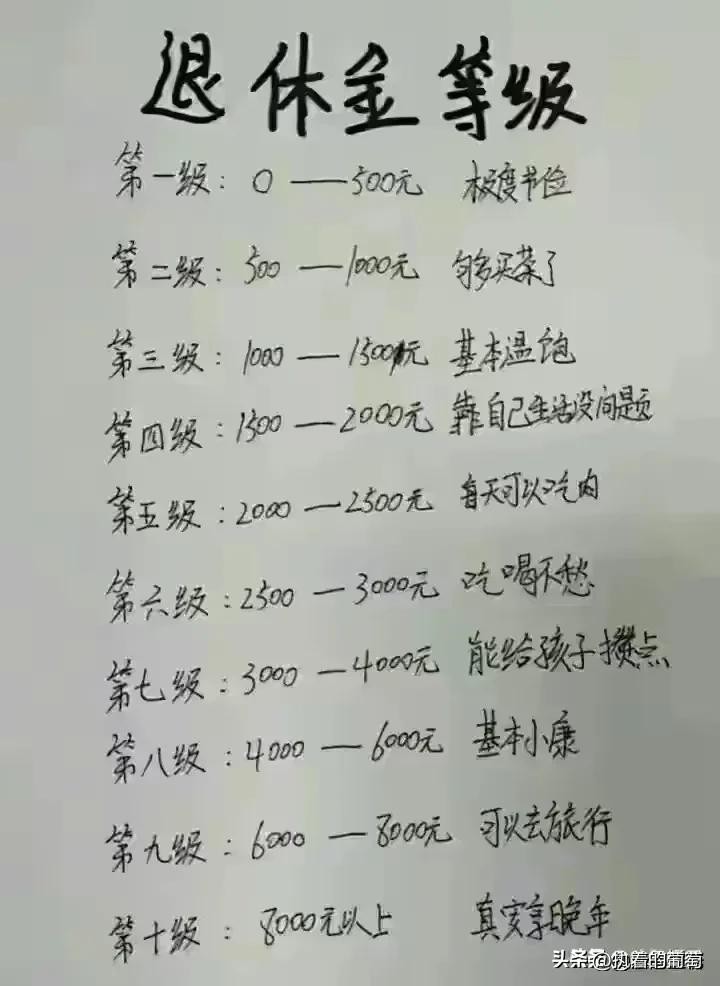 退休金等级
第一级: 0 — 500元 极度节俭
第二级: 500 — 1000元 够买菜了
第三级: 1000 — 1500元 基本温饱
第四级: 1500 — 2000元 靠自己生活没问题
第五级: 2000 — 2500元 每天可以吃肉
第六级: 2500 — 3000元 吃喝不愁
第七级: 3000 — 4000元 能给孩子攒点
第八级: 4000 — 6000元 基本小康
第九级: 6000 — 8000元 可以去旅行
第十级: 8000元以上 真实享晚年
头条 @执着的葡萄